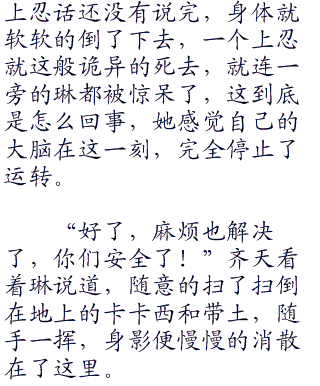 上忍话还没有说完，身体就
软软的倒了下去，一个上忍
就这般诡异的死去，就连一
旁的琳都被惊呆了，这到底
是怎么回事，她感觉自己的
大脑在这一刻，完全停止了
运转。
“好了，麻烦也解决
了，你们安全了！”齐天看
着琳说道，随意的扫了扫倒
在地上的卡卡西和带土，随
手一挥，身影便慢慢的消散
在了这里。